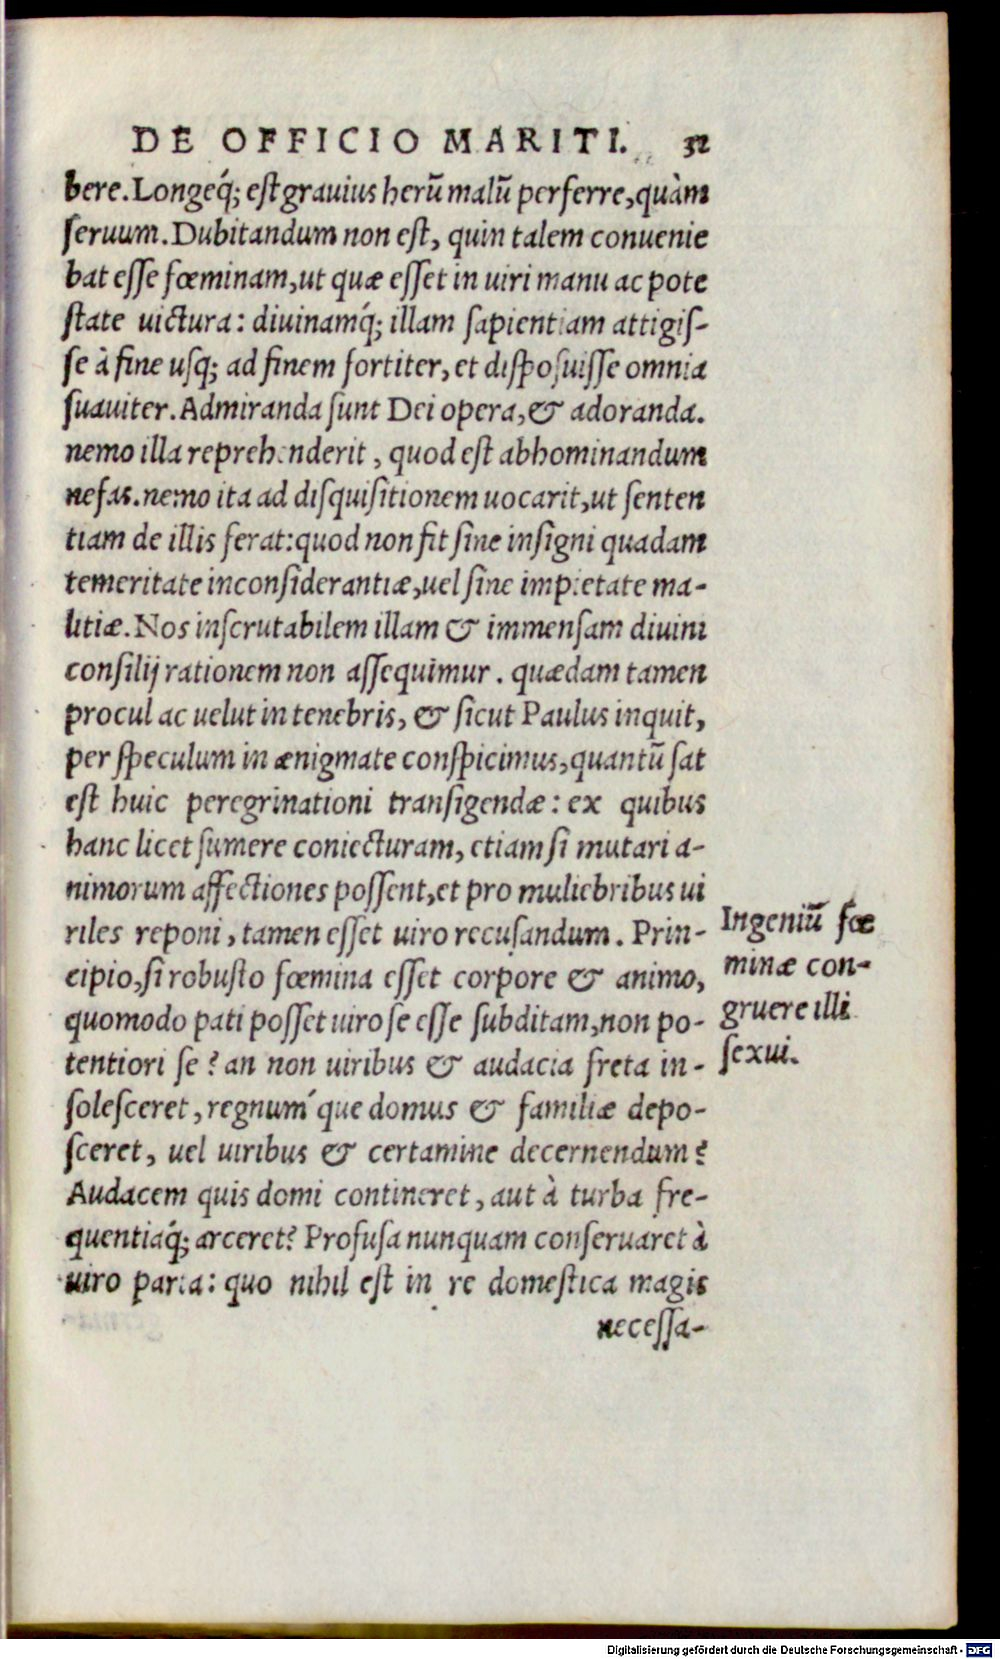 DE OFFICIO MARITI. 32
bere. Longeq́; est grauius herū malū perferre, quàm
seruum. Dubitandum non est, quin talem conuenie
bat esse fœminam, ut quæ esset in uiri manu ac pote
state uictura: diuinamq́; illam sapientiam attigis-
se à fine usq; ad finem fortiter, et disposuisse omnia
suauiter. Admiranda sunt Dei opera, & adoranda.
nemo illa reprehenderit, quod est abhominandum
nefas. nemo ita ad disquisitionem uocarit, ut senten
tiam de illis ferat: quod non fit sine insigni quadam
temeritate inconsiderantiæ, uel sine impietate ma-
litiæ. Nos inscrutabilem illam & immensam diuini
consilij rationem non assequimur. quædam tamen
procul ac uelut in tenebris, & sicut Paulus inquit,
per speculum in ænigmate conspicimus, quantū sat
est huic peregrinationi transigendæ: ex quibus
hanc licet sumere coniecturam, etiam si mutari a-
nimorum affectiones possent, et pro muliebribus ui
riles reponi, tamen esset uiro recusandum. Prin-
cipio, si robusto fœmina esset corpore & animo,
quomodo pati posset uiro se esse subditam, non po-
tentiori se? an non uiribus & audacia freta in-
solesceret, regnum´que domus & familiæ depo-
sceret, uel uiribus & certamine decernendum?
Audacem quis domi contineret, aut à turba fre-
quentiaq́; arceret? Profusa nunquam conseruaret à
uiro parta: quo nihil est in re domestica magis
necessa-
Ingeniū fœ
minæ con-
gruere illi
sexui.
Digitalisierung gefördert durch die Deutsche Forschungsgemeinschaft - DFG